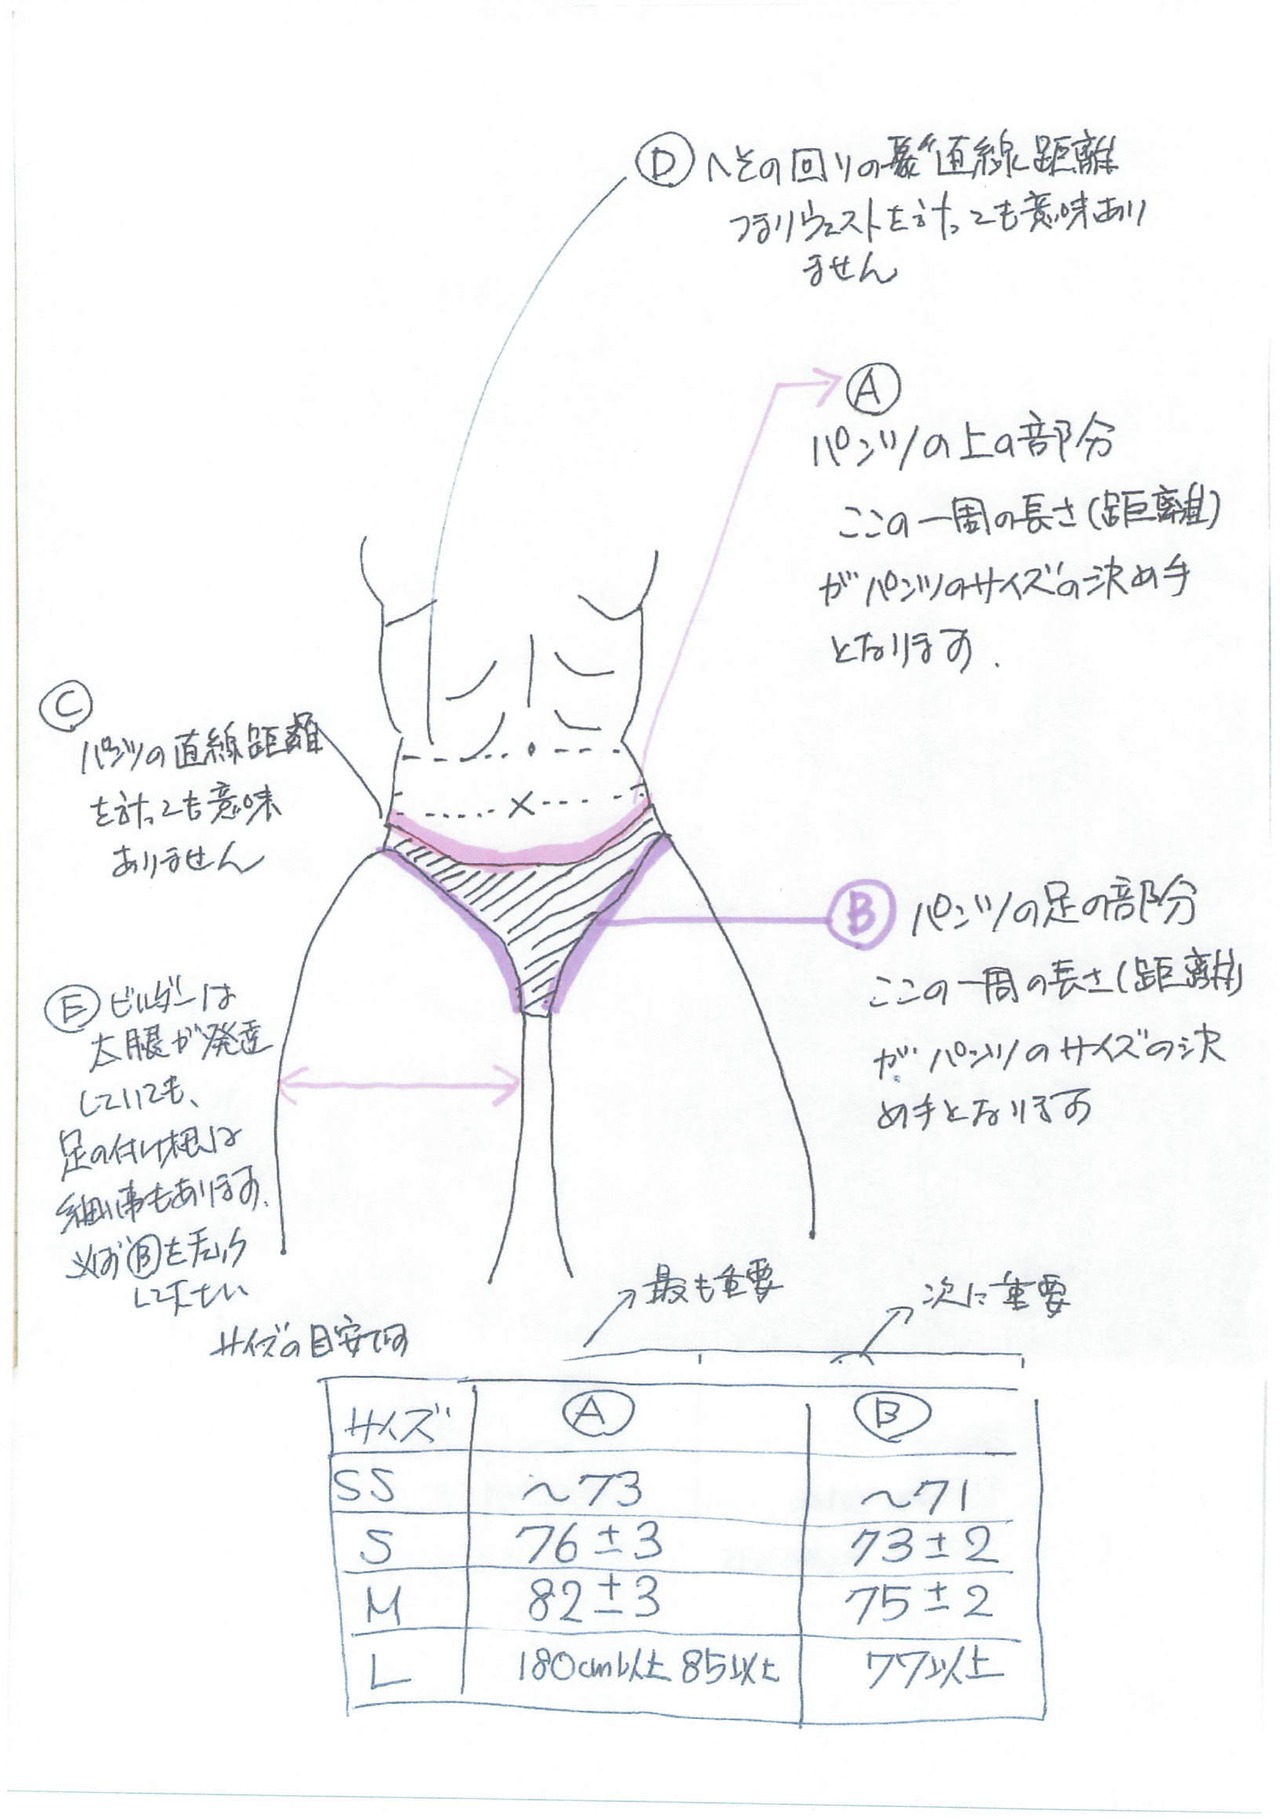 Ⓓ へその回りの直線距離
つまりウェストを計っても意味あり
ません
Ⓐ
パンツの上の部分
ここの一周の長さ(距離)
がパンツのサイズの決め手
となります.
Ⓒ
パンツの直線距離
を計っても意味
ありません
Ⓑ パンツの足の部分
ここの一周の長さ(距離)
がパンツのサイズの決
め手となります
Ⓔ ビルダーは
大腿が発達
していても、
足の付け根は
細い事もあります.
必ずⒷをチェック
して下さい
サイズの目安です
最も重要
次に重要
サイズ Ⓐ Ⓑ
SS ～73 ～71
S 76±3 73±2
M 82±3 75±2
L 180cm以上 85以上 77以上